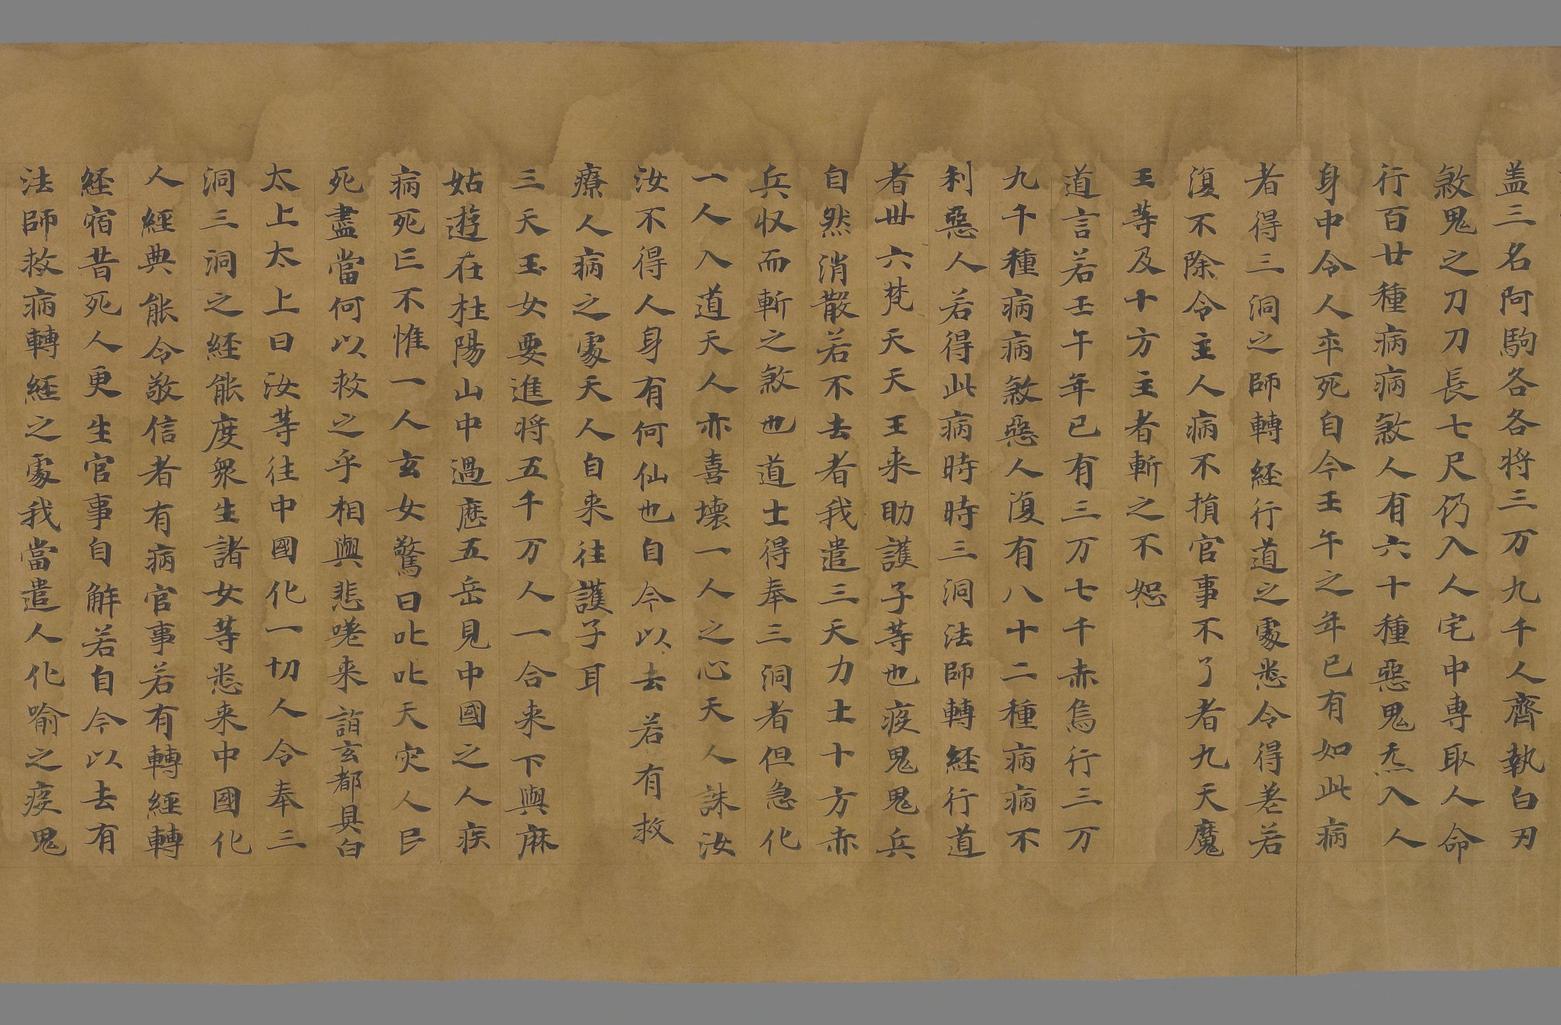 盖三名阿駒各各将三万九千人齊執白刃
煞鬼之刀刀長七尺仍入人宅中専取人命
行百廿種病病煞人有六十種惡鬼炁入人
身中令人卒死自今壬午之年已有如此病
者得三洞之師轉経行道之處悉令得差若
復不除令主人病不損官事不了者九天魔
王等及十方主者斬之不恕
道言若壬午年已有三万七千赤烏行三万
九千種病病煞惡人復有八十二種病病不
利惡人若得此病時時三洞法師轉経行道
者丗六梵天天王来助護子等也疫鬼鬼兵
自然消散若不去者我遣三天力士十方赤
兵収而斬之煞也道士得奉三洞者但急化
一人入道天人亦喜壊一人之心天人誅汝
汝不得人身有何仙也自今以去若有救
療人病之處天人自来往護子耳
三天玉女要進将五千万人一合来下與麻
姑遊在杜陽山中過應五岳見中國之人疾
病死亡不惟一人玄女驚曰叱叱天灾人民
死盡當何以救之乎相與悲嗟来詣玄都具白
太上太上曰汝等往中國化一切人令奉三
洞三洞之経能度衆生諸女等悉来中國化
人經典能令敬信者有病官事若有轉經轉
経宿昔死人更生官事自解若自今以去有
法師救病轉経之處我當遣人化喻之疫鬼